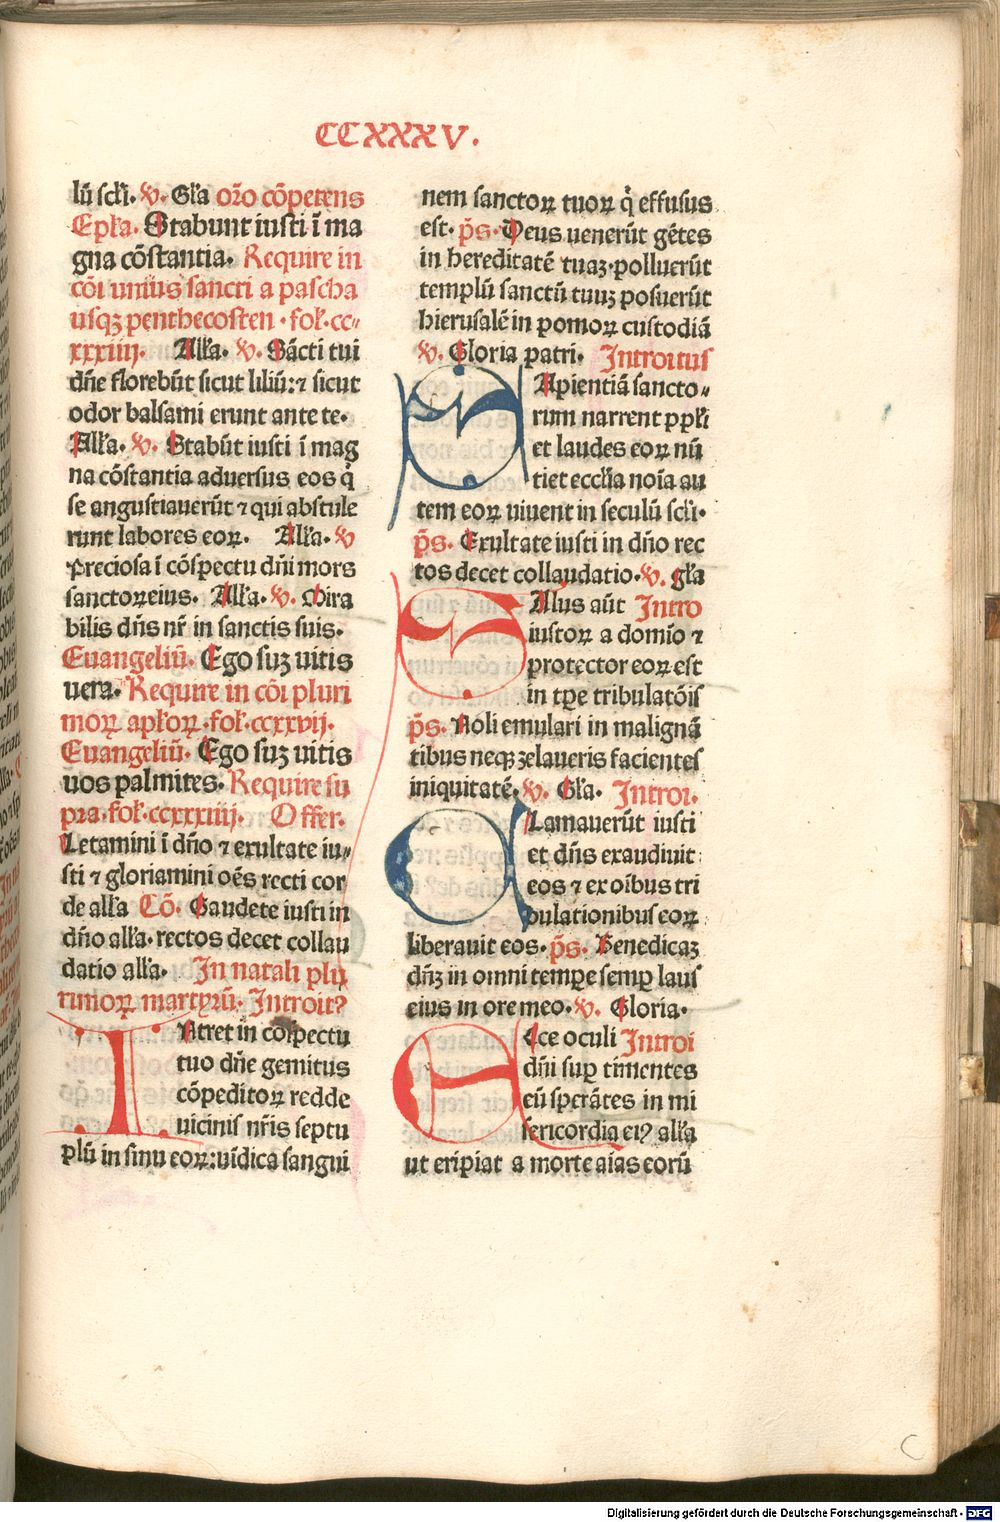 CCXXXV.
lū scłi. v. Gła oro cōpetens
Epła. Stabunt iusti ī ma
gna cōstantia. Require in
cōi unius sancti a pascha
usqꝫ penthecosten · fol̄·cc⸗
xxxiiij. Alła. v. Sācti tui
dn̄e florebūt sicut liliū: ⁊ sicut
odor balsami erunt ante te.
Alła. v. Stabūt iusti ī mag
na cōstantia adversus eos q̇
se angustiaverūt ⁊ qui abstule
runt labores eoꝝ. Alła. v
Preciosa ī cōspectu dn̄i mors
sanctoꝝ eius. Alła. v. Mira
bilis dn̄s nr̄ in sanctis suis.
Evangeliū. Ego suꝫ vitis
vera. Require in cōi pluri
moꝝ apłoꝝ .fol̄.ccxxvij.
Evangeliū. Ego suꝫ vitis
vos palmites. Require su
pra.fol̄.ccxxxiiij. Offer.
Letamini ī dn̄o ⁊ exultate iu⸗
sti ⁊ gloriamini oēs recti cor
de alła Cō. Gaudete iusti in
dn̄o alła. rectos decet collau
datio alła. In natali plu
rimoꝝ martyrū. Introitꝰ
INtret in cōspectu
tuo dn̄e gemitus
cōpeditoꝝ redde
vicinis nr̄is septu
plū in sinu eoꝝ: vīdica sangui
nem sanctoꝝ tuoꝝ q̇ effusus
est. ps̄. Deus venerūt gētes
in hereditatē tuaꝫ·polluerūt
templū sanctū tuuꝫ posuerūt
hierusalē in pomoꝝ custodiā
v. Gloria patri. Introitus
SApientiā sancto⸗
rum narrent ppłi
et laudes eoꝝ nū
tiet ecclia noīa au
tem eoꝝ vivent in seculū scłi.
ps̄. Exultate iusti in dn̄o rec
tos decet collaudatio. v. gła
SAlus aūt Intro
iustoꝝ a domīo ⁊
protector eoꝝ est
in tꝑe tribulatōis
ps̄. Noli emulari in malignā
tibus neqꝫ zelaveris facientes
iniquitatē. v. Gła. Introi.
CLamaverūt iusti
et dn̄s exaudivit
eos ⁊ ex oībus tri
bulationibus eoꝝ
liberavit eos. ps̄. Benedicaꝫ
dn̄ꝫ in omni tempe semꝑ laus
eius in ore meo. v. Gloria.
ECce oculi Introi
dn̄i suꝑ timentes
eū sperātes in mi
sericordia eiꝰ alła
ut eripiat a morte aīas eorū
Digitalisierung gefördert durch die Deutsche Forschungsgemeinschaft - DFG